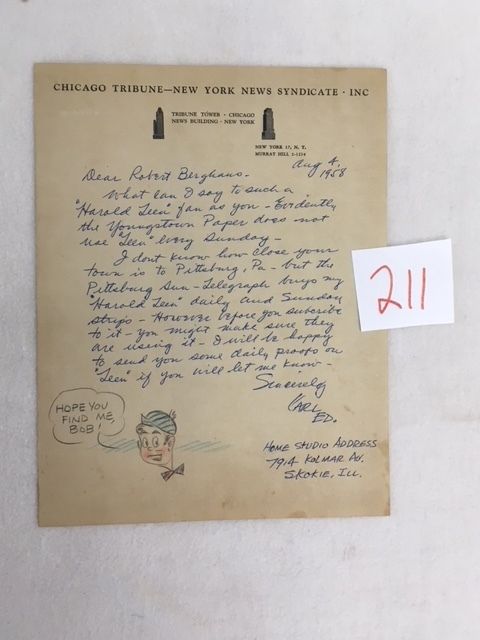 CHICAGO TRIBUNE—NEW YORK NEWS SYNDICATE · INC
TRIBUNE TOWER · CHICAGO
NEWS BUILDING · NEW YORK
NEW YORK 17, N. Y.
MURRAY HILL 2-1234
Aug 4,
1958
Dear Robert Berghaus.
What can I say to such a
"Harold Teen" fan as you - Evidently
the Youngstown Paper does not
use "Teen" every Sunday -
I dont know how close your
town is to Pittsburg, Pa - but the
Pittsburg Sun-Telegraph buys my
"Harold Teen" daily and Sunday
strips - However before you subscribe
to it - you might make sure they
are using it - I will be happy
to send you some daily proofs on
"Teen" if you will let me know -
Sincerely
CARL
ED.
HOPE YOU
FIND ME,
BOB!
HOME STUDIO ADDRESS
7914 KOLMAR AV.
SKOKIE, ILL.
211